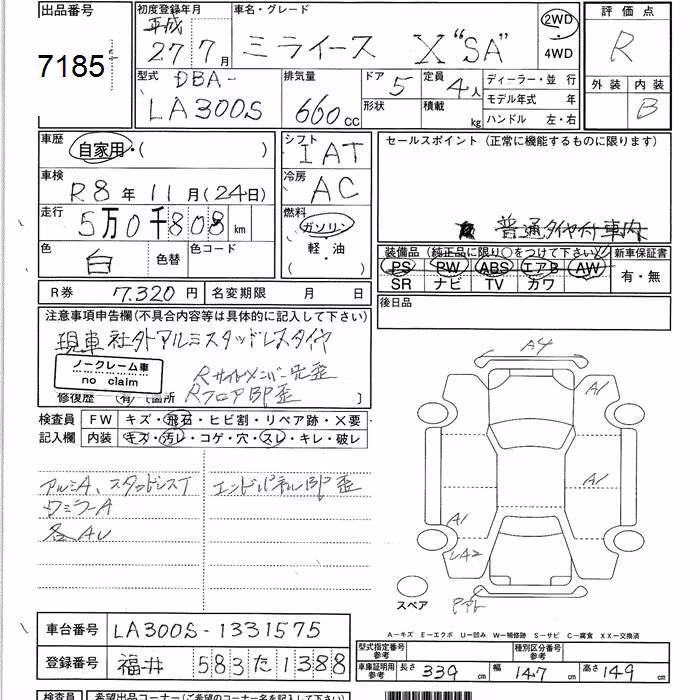 出品番号
7185
初度登録年月
平成
27 7月
車名・グレード
ミライース X "SA"
2WD
4WD
評価点
R
外装 内装
B
型式
DBA-
LA300S
排気量
660cc
ドア
5
定員
4人
形状
積載
kg
ディーラー・並行
モデル年式 年
ハンドル 左・右
車歴
自家用・( )
車検
R8年 11月(24日)
走行
5万0千808km
色
白
色替
色コード
シフト
IAT
冷房
AC
燃料
ガソリン
軽・油
セールスポイント(正常に機能するものに限ります)
普通タイヤ付車内
装備品(純正品に限り○をつけて下さい)
PS PW ABS エアB AW
SR ナビ TV カワ
新車保証書
有・無
R券 7.320円
名変期限 月 日
後日品
注意事項申告欄(不具合内容等は具体的に記入して下さい)
現車社外アルミスタッドレスタイヤ
ノークレーム車
no claim
Rサイドメンバー先歪
RフロアBP歪
修復歴 (有)(箇所 ]
検査員
記入欄
FW キズ・飛石・ヒビ割・リペア跡・×要
内装 キズ・汚レ・コゲ・穴・スレ・キレ・破レ
アルミA、スタッドレスT
ワミラーA
各AU
エンドパネルBP歪
A4
A1
A1
A1
UA2
スペア
A-キズ E-エクボ U-凹み W-補修跡 S-サビ C-腐食 XX-交換済
車台番号 LA300S-1331575
登録番号 福井 583た1388
型式指定番号
参考
種別区分番号
参考
車庫証明用
参考
長さ 339 cm
幅 147 cm
高さ 149 cm
検査員
希望出品コーナー(ご希望のコーナー名を記入して下さい)